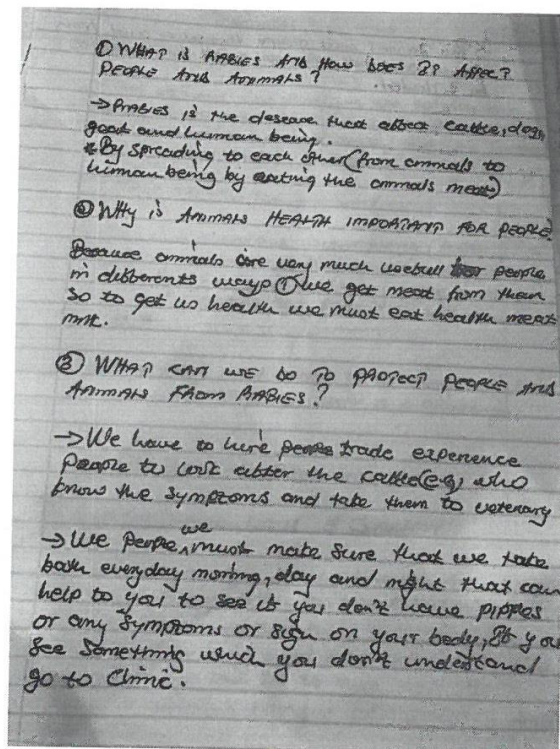 ① WHAT IS RABIES AND HOW DOES IT AFFECT
PEOPLE AND ANIMALS?
→ RABIES is the desease that affect cattle, dog,
goat and human being.
* By spreading to each other (from animals to
human being by eating the animals meat)
② WHY IS ANIMALS HEALTH IMPORTANT FOR PEOPLE
Because animals are very much usefull for people
in differents ways ① we get meat from them
so to get us health we must eat health meat
milk.
③ WHAT CAN WE DO TO PROTECT PEOPLE AND
ANIMALS FROM RABIES?
→ We have to hire people trade experience
people to look after the cattle (e.g) who
know the symptoms and take them to veterary
→ We people, we must make sure that we take
bath everyday morning, day and night that can
help to you to see if you don't have pipples
or any symptoms or sign on your body, If you
see something which you don't understand
go to Clinic.